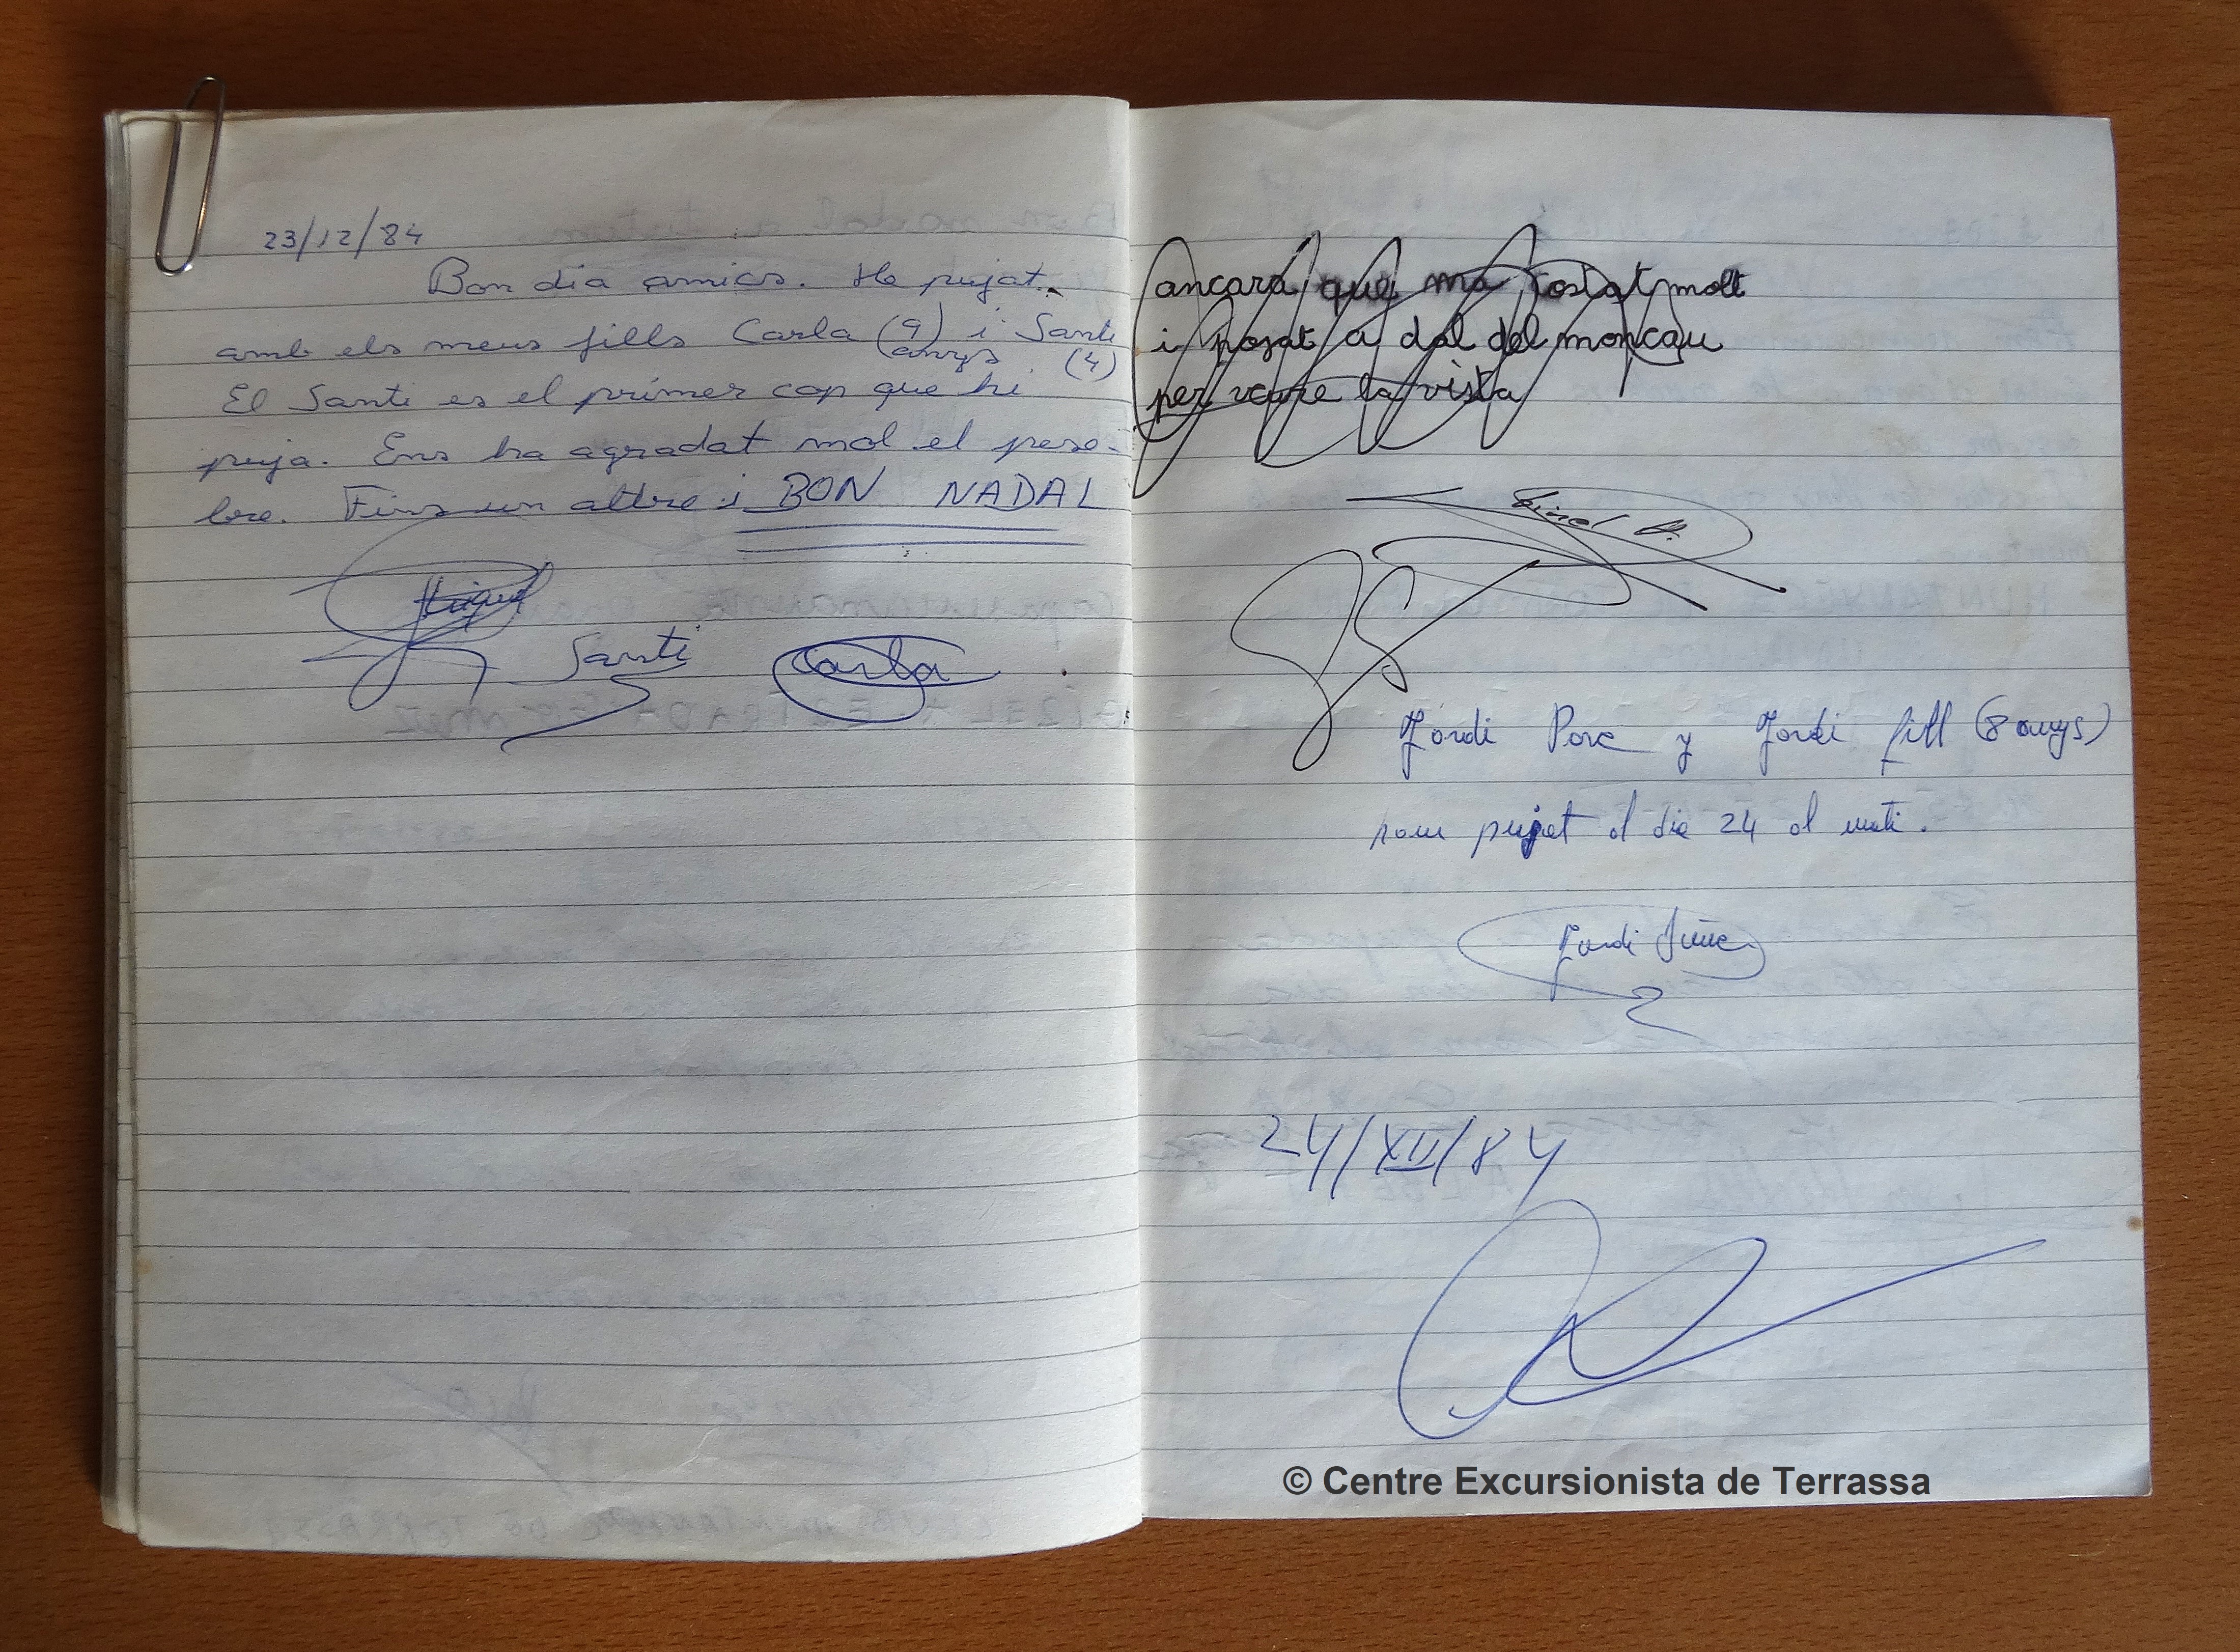 23/12/84
Bon dia amics. He pujat
amb els meus fills Carla (9) i Santi
anys (4)
El Santi es el primer cop que hi
puja. Ens ha agradat mol el pese-
bre. Fins un altre i BON NADAL
Miquel
Santi Carla
ancara que ma costat molt
i pojat a dal del moncau
per veure la vista
Jordi Pare y Jordi fill (8 anys)
hem pujat el dia 24 al mati.
Jordi
24/XII/84
© Centre Excursionista de Terrassa